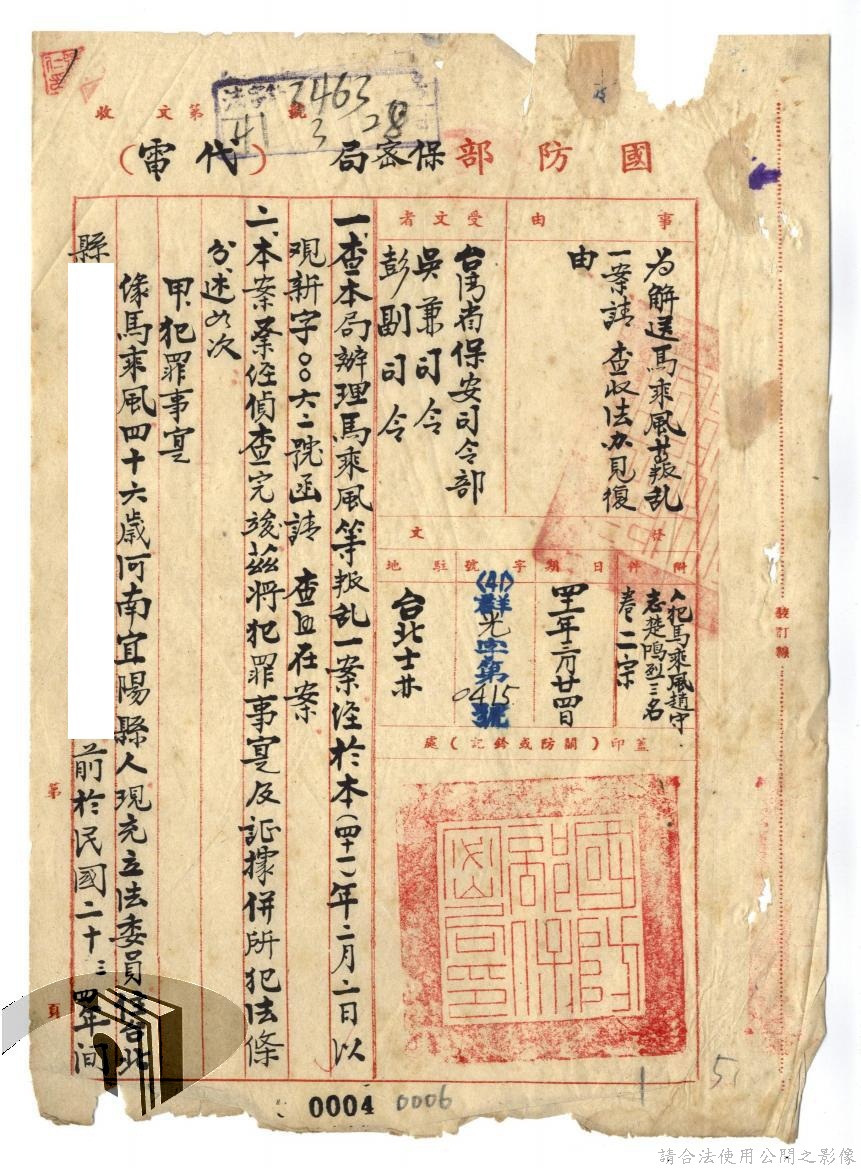 收文 第 號
法字第3463號
41 3 28
國防部保密局(代電)
事由
為解送馬乘風等叛乱
一案請 查收法办見復
由
受文者
台灣省保安司令部
吳兼司令
彭副司令
附件
人犯馬乘風趙守
志楚鳴烈三名
卷二宗
發文
日期
四一年三月廿四日
字號
(41)群光字第
0415號
駐地
台北士林
蓋印(關防或鈐記)處
國防部保密局印
一、查本局辦理馬乘風等叛乱一案経於本(四十一)年二月二日以
观新字〇〇六二號函請 查照在案
二、本案業経偵查完竣茲將犯罪事实及証據併所犯法條
分述如次
甲、犯罪事实
緣馬乘風四十六歲河南宜陽縣人現充立法委員住台北
縣
前於民國二十三、四年间
裝訂線
第 頁
0004
0006
1
51
請合法使用公開之影像